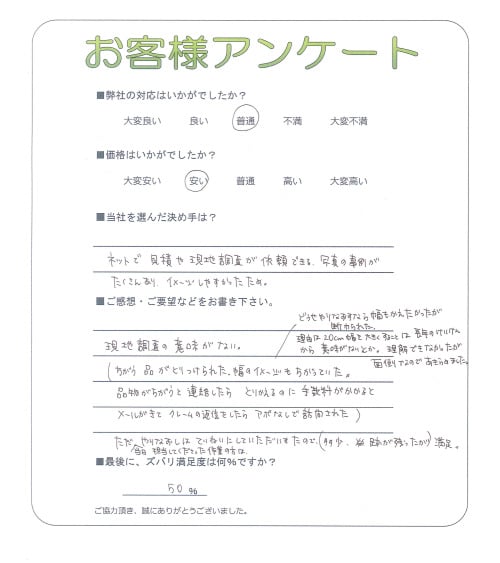 お客様アンケート
■弊社の対応はいかがでしたか？
大変良い 良い 普通 不満 大変不満
■価格はいかがでしたか？
大変安い 安い 普通 高い 大変高い
■当社を選んだ決め手は？
ネットで見積や現地調査が依頼できる、写真の事例が
たくさんあり、イメージしやすかったため。
■ご感想・ご要望などをお書き下さい。
どうせやりなおすなら幅もかえたかったが
断わられた。
理由は20cm幅を大きくすることは長年のけいけん
から意味がないとか。理解できなかったが
面倒なのであきらめました。
現地調査の意味がない。
(ちがう品がとりつけられた、幅のイメージもちがっていた。
品物がちがうと連絡したらとりかえるのに手数料がかかると
メールがきてクレームの返信をしたらアポなしで訪問された)
ただ、やりなおしはていねいにしていただいたので、(多少、 跡が残ったが)満足。
当日担当してくださった作業の方は、
■最後に、ズバリ満足度は何％ですか？
50％
ご協力頂き、誠にありがとうございました。